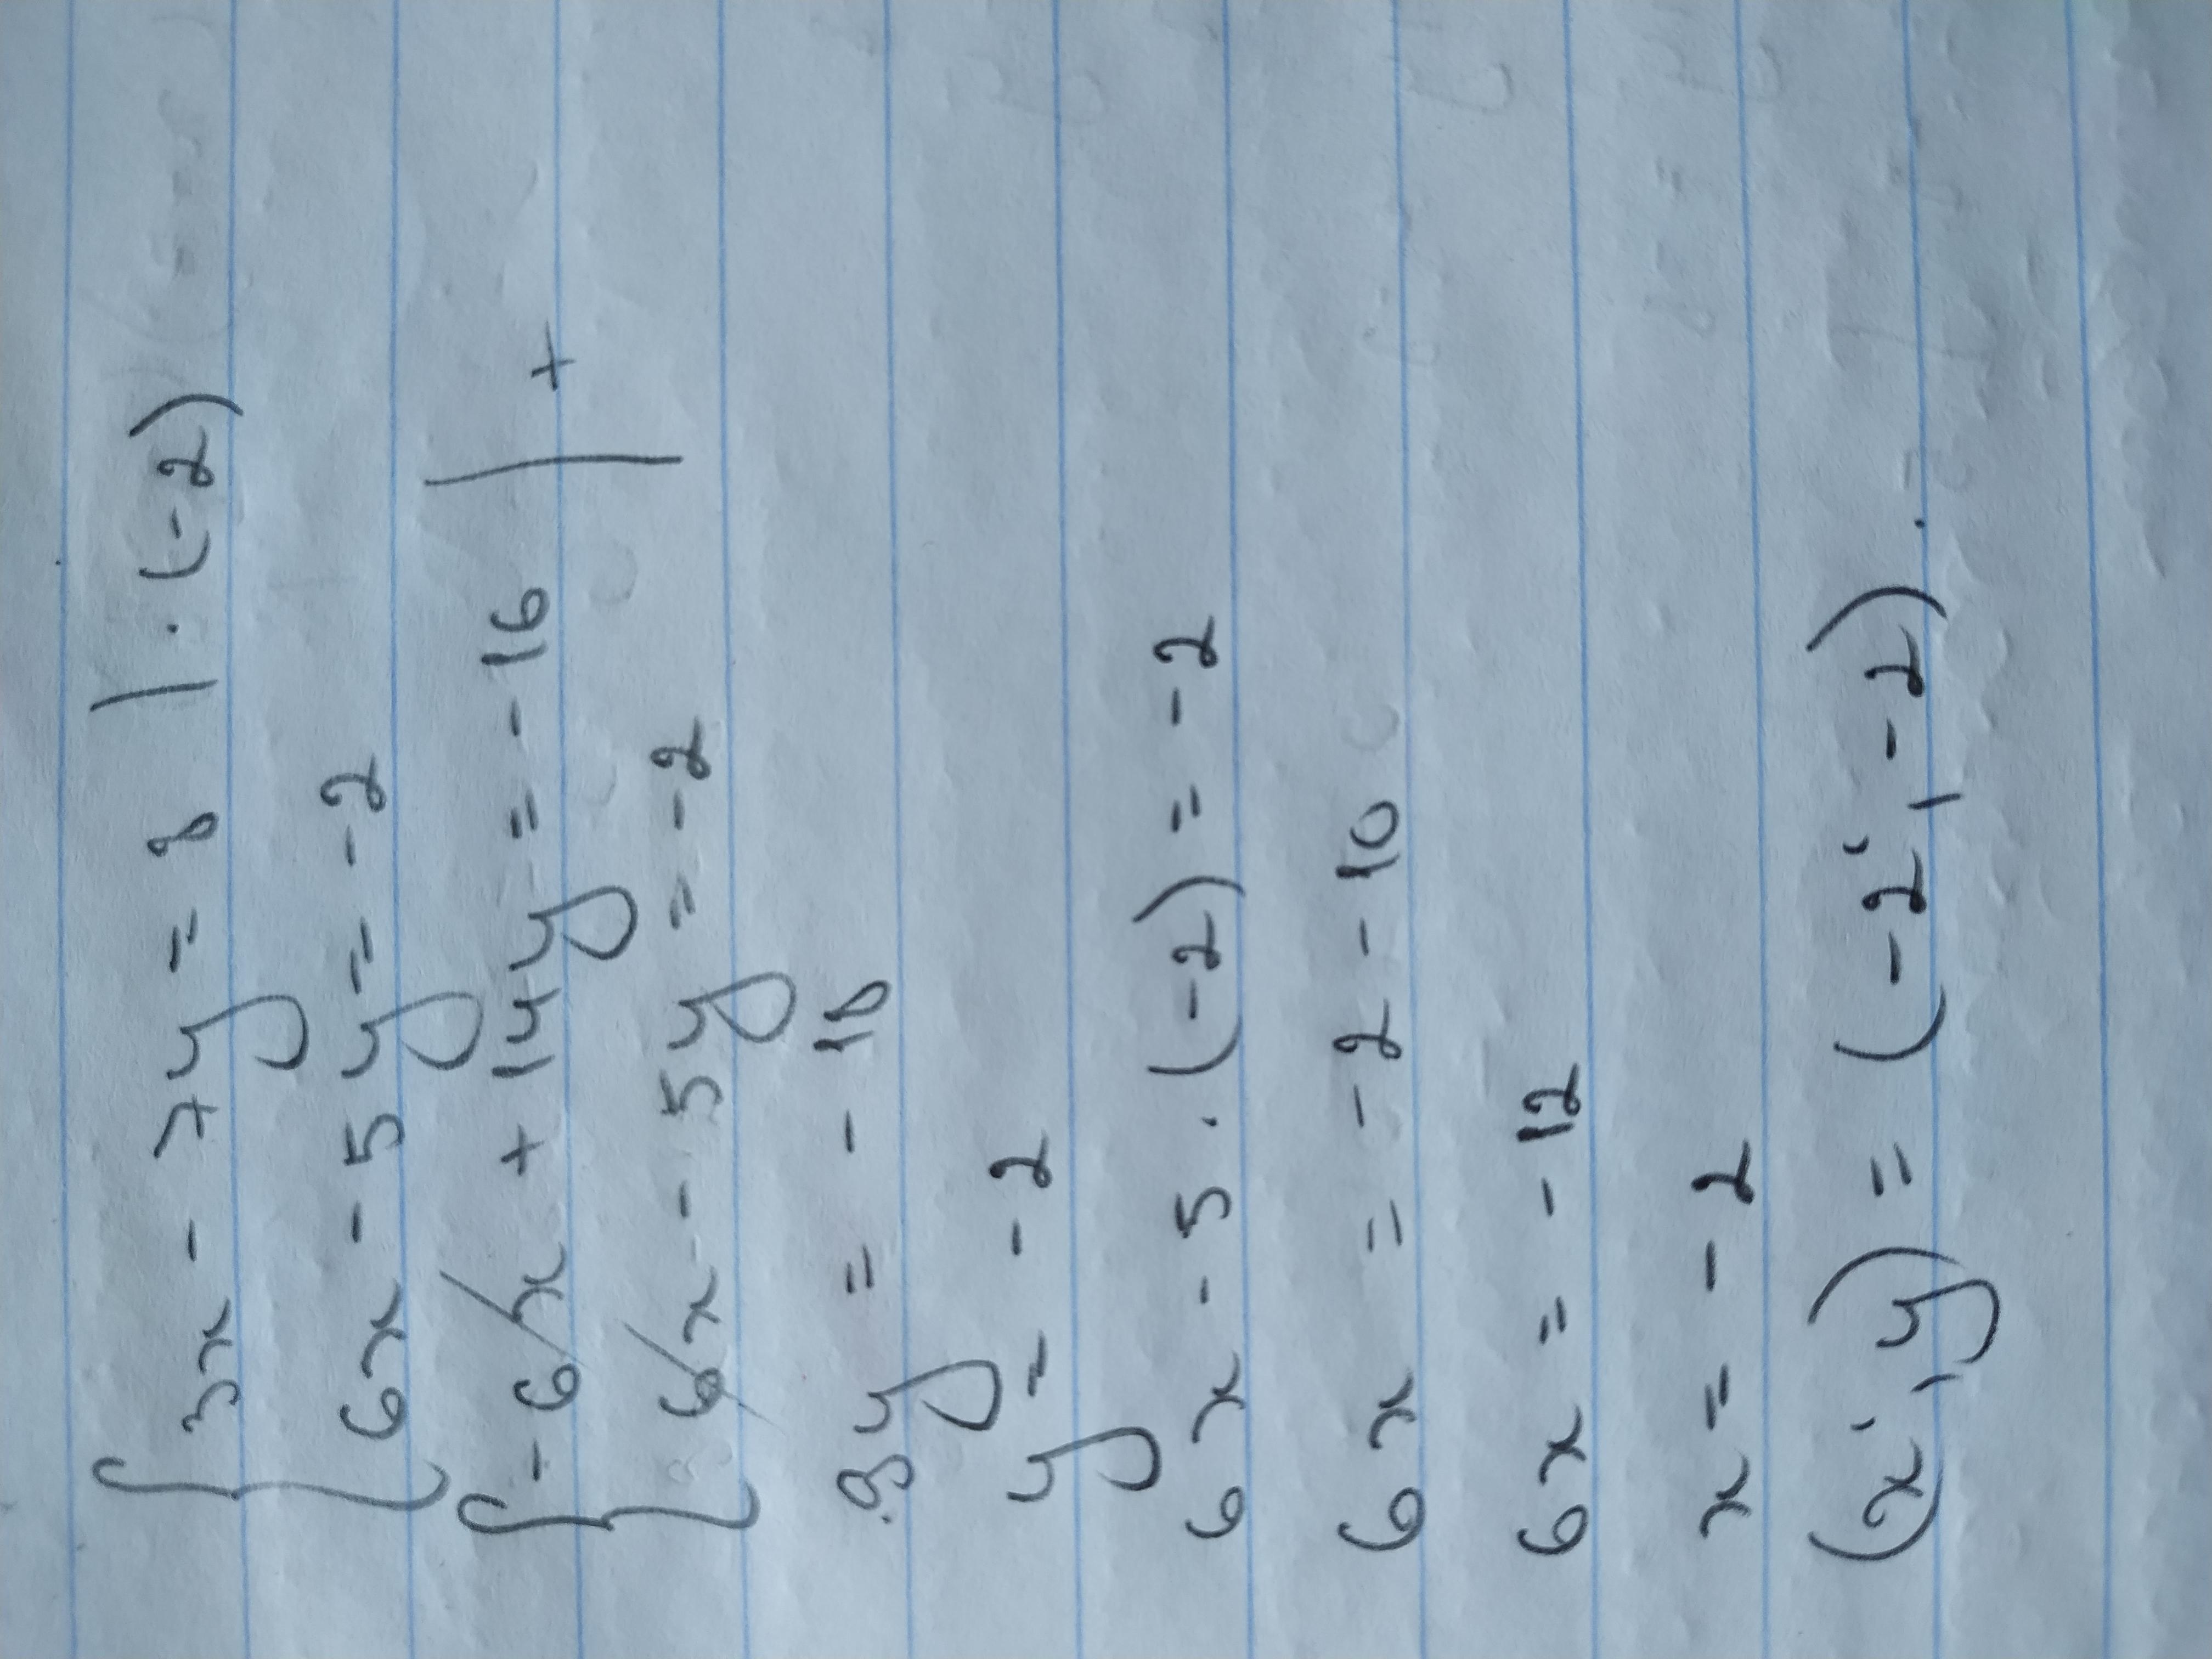 3x - 7y = 8 | · (-2)
6x - 5y = -2
-6x + 14y = -16
6x - 5y = -2 | +
9y = -18
y = -2
6x - 5 · (-2) = -2
6x = -2 - 10
6x = -12
x = -2
(x, y) = (-2, -2).